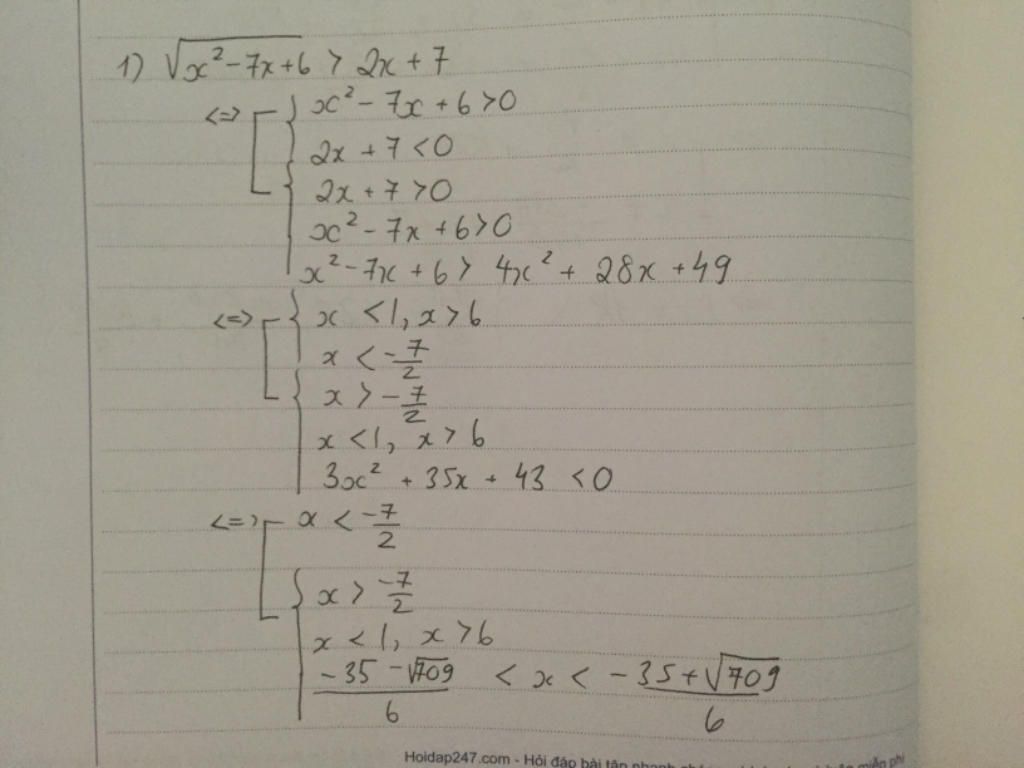 1) √(x² - 7x + 6) > 2x + 7
<=> x² - 7x + 6 > 0
2x + 7 < 0
2x + 7 > 0
x² - 7x + 6 > 0
x² - 7x + 6 > 4x² + 28x + 49
<=> x < 1, x > 6
x < -7/2
x > -7/2
x < 1, x > 6
3x² + 35x + 43 < 0
<=> x < -7/2
x > -7/2
x < 1, x > 6
(-35 - √709)/6 < x < (-35 + √709)/6
Hoidap247.com - Hỏi đáp bài tập nhanh miễn phí